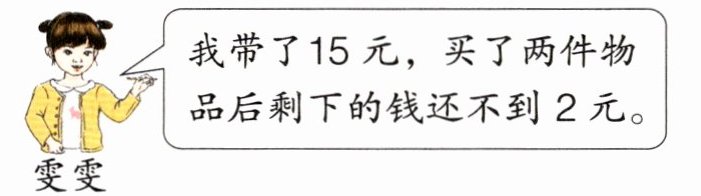 我带了15元，买了两件物
品后剩下的钱还不到2元。
雯雯